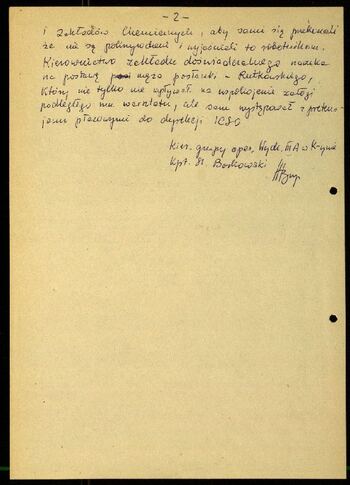 - 2 -
i Zakładów Chemicznych, aby sami się przekonali
że nie są pokrzywdzeni i wyjaśnili to robotnikom.
Kierownictwo Zakładu doświadczalnego narzeka
na postawę męża posłanki - Rutkowskiego,
który nie tylko nie wpływał na uspokojenie załogi
podległego mu warsztatu, ale sam występował z preten-
sjami płacowymi do dyrekcji ICSO
Kier. grupy oper. Wydz. III A w K-nie
Kpt. St. Borkowski